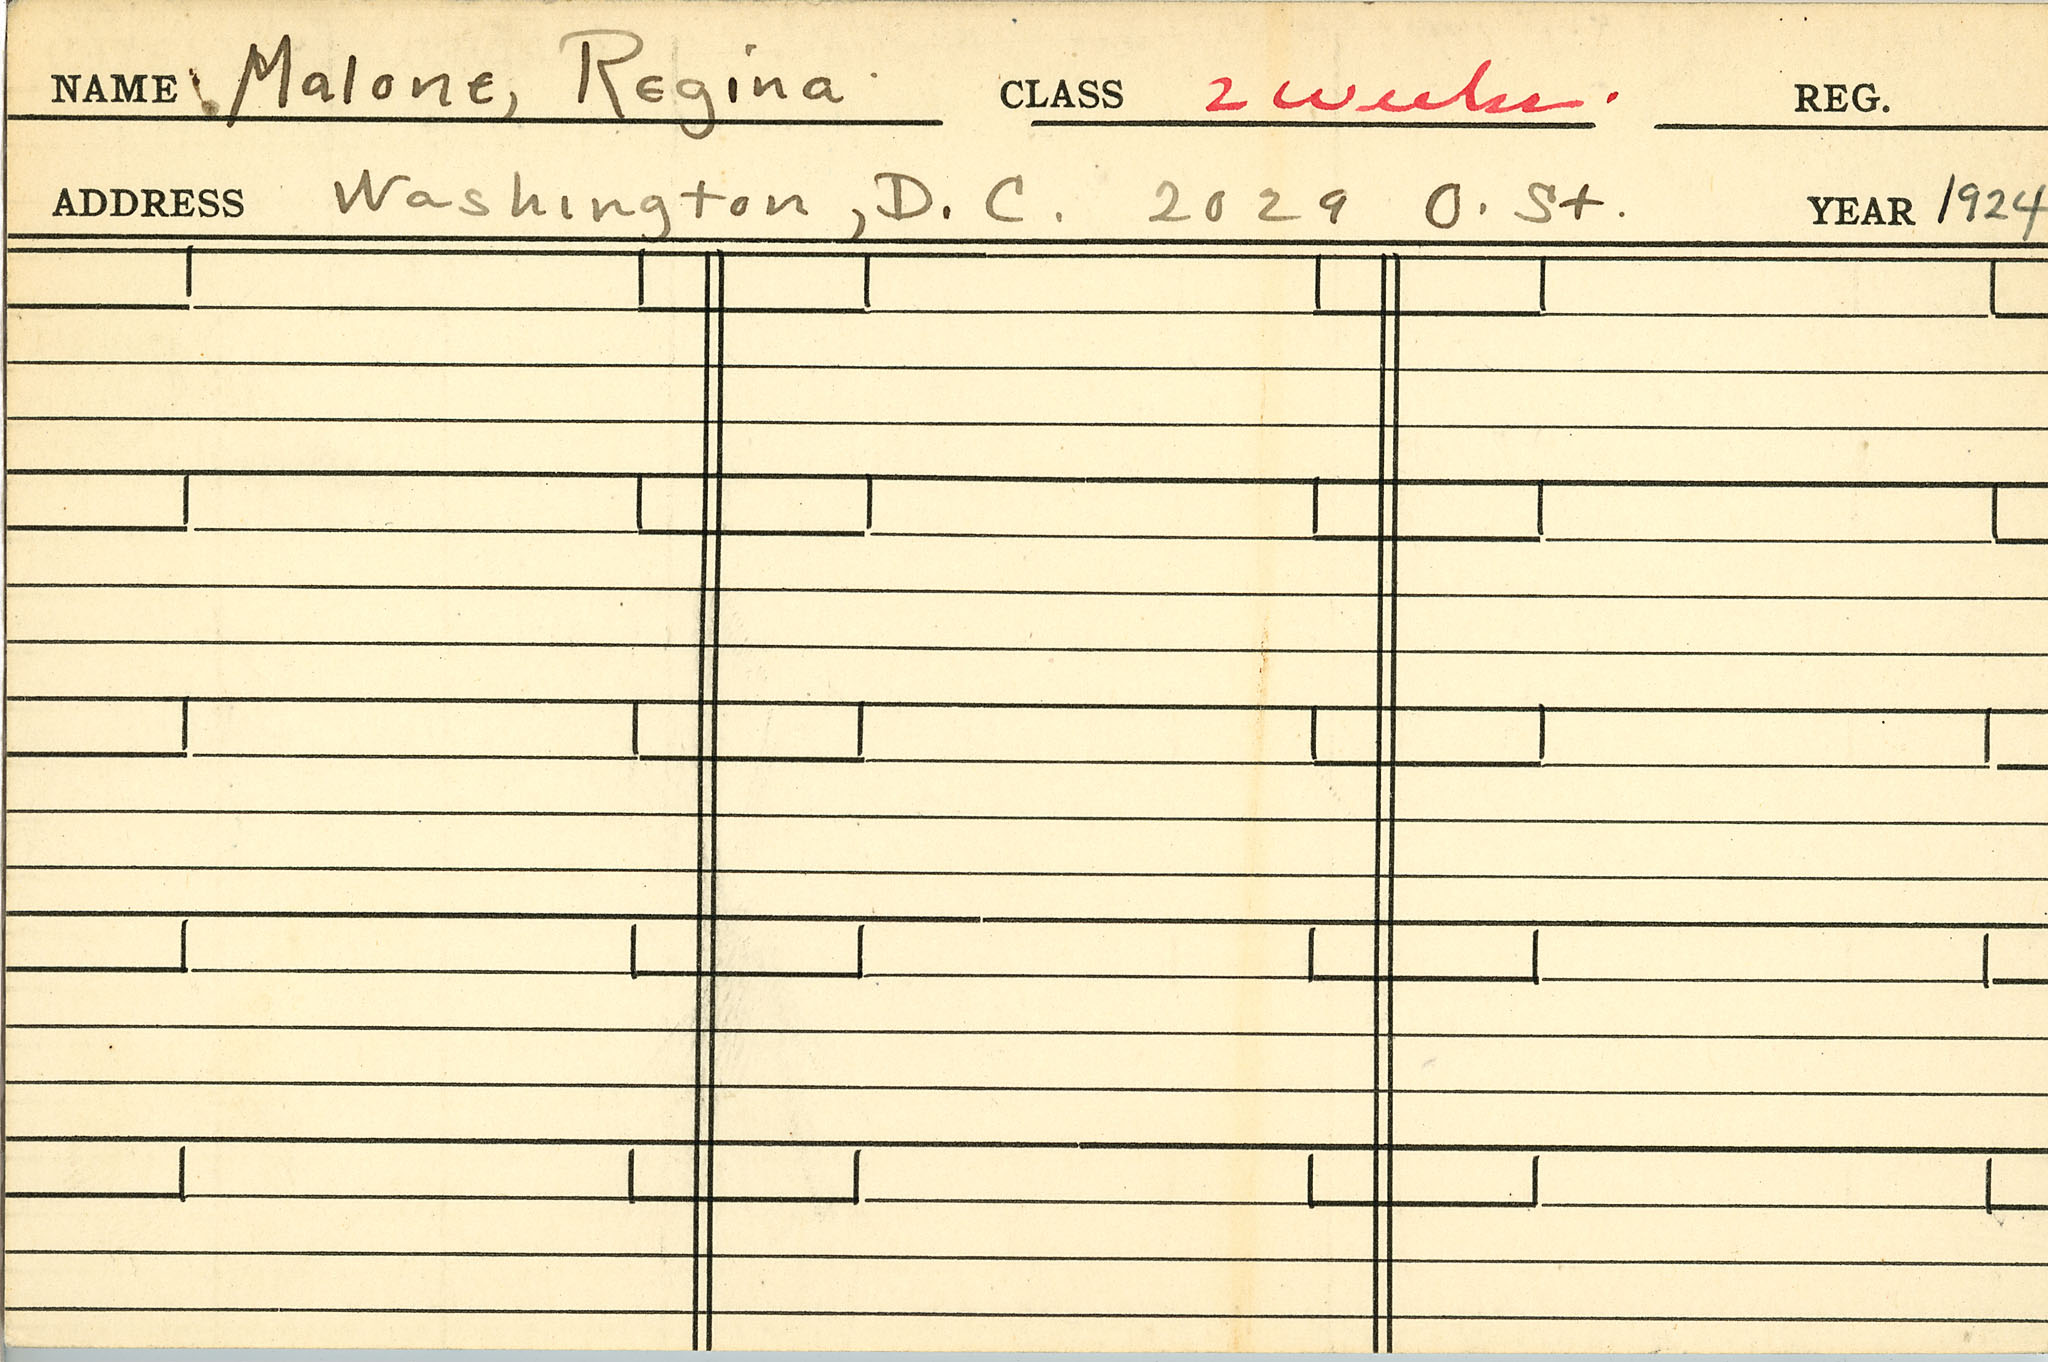 NAME Malone, Regina CLASS 2 weeks. REG.
ADDRESS Washington, D.C. 2029 O. St. YEAR 1924